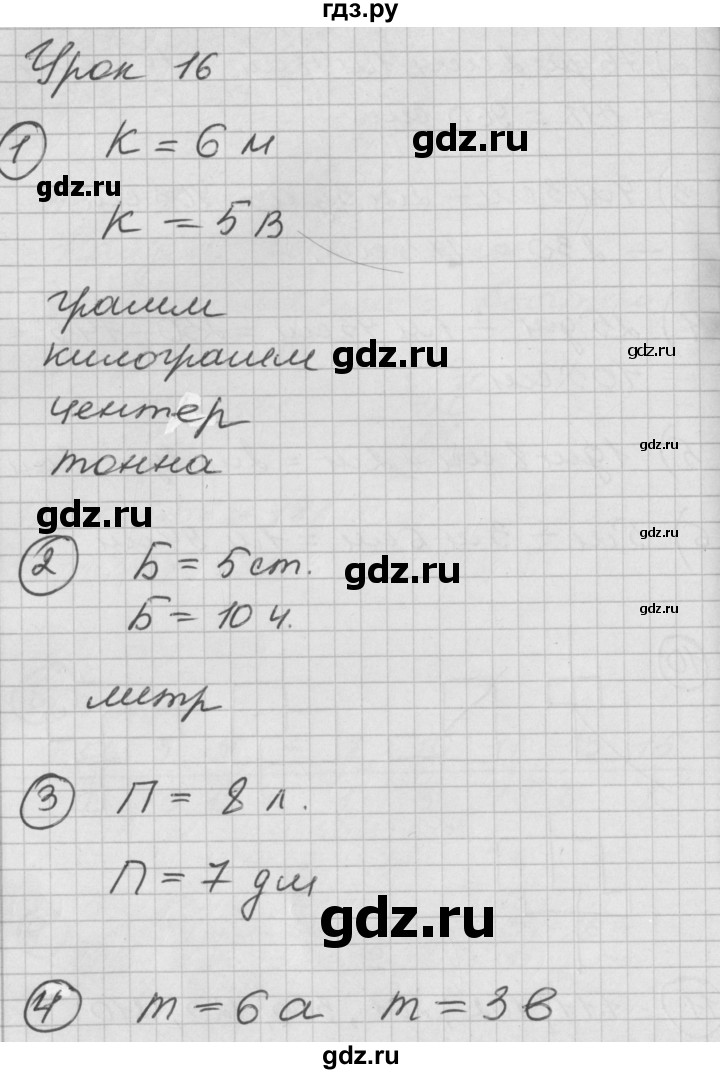 гдз.ру
Урок 16
1 К = 6 м
gdz.ru
gdz.ru
К = 5 В
грамм
килограмм gdz.ru
gdz.ru
центер
gdz.ru
тонна
gdz.ru
gdz.ru
2 Б = 5 ст.
gdz.ru
Б = 10 ч.
gdz.ru
литр
3 П = 8 л.
П = 7 дм
gdz.ru
4 m = 6 а m = 3 в
gdz.ru